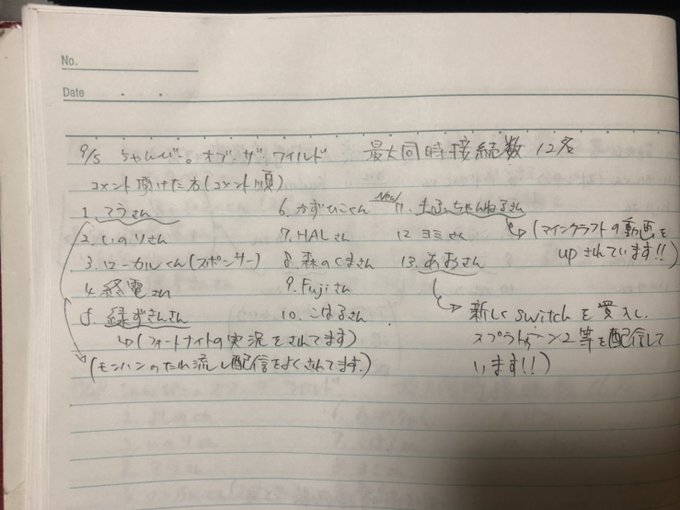 No.
Date
9/5 ちゃんぴー。オブ・ザ・ワイルド 最大同時接続数 12名
コメント頂けた方(コメント順)
1. てうさん
2. いのりさん
3. ローカルくん(スポンサー)
4. 終電さん
5. 緑ずきんさん
→(フォートナイトの実況をされてます)
(モンハンのたれ流し配信をよくされてます。)
6. かずひこくん
7. HALさん
8. 森のくまさん
9. Fujiさん
10. こはるさん
New!
11. ちゃんねるさん
→(マインクラフトの動画を
upされています!!)
12 ヨミさん
13. あおさん
→ 新しくswitchを買入し、
スプラトゥーン2等を配信して
います!!)